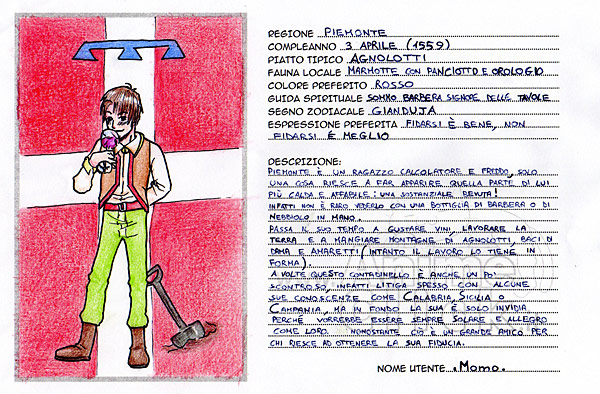 REGIONE PIEMONTE
COMPLEANNO 3 APRILE (1559)
PIATTO TIPICO AGNOLOTTI
FAUNA LOCALE MARMOTTE CON PANCIOTTO E OROLOGIO
COLORE PREFERITO ROSSO
GUIDA SPIRITUALE SOMMO BARBERA SIGNORE DELLE TAVOLE
SEGNO ZODIACALE GIANDUJA
ESPRESSIONE PREFERITA FIDARSI È BENE, NON
FIDARSI È MEGLIO
DESCRIZIONE:
PIEMONTE È UN RAGAZZO CALCOLATORE E FREDDO, SOLO
UNA COSA RIESCE A FAR APPARIRE QUELLA PARTE DI LUI
PIÙ CALDA E AFFABILE: UNA SOSTANZIALE BEVUTA!
INFATTI NON È RARO VEDERLO CON UNA BOTTIGLIA DI BARBERA O DI
NEBBIOLO IN MANO.
PASSA IL SUO TEMPO A GUSTARE VINI, LAVORARE LA
TERRA E A MANGIARE MONTAGNE DI AGNOLOTTI, BACI DI
DAMA E AMARETTI (INTANTO IL LAVORO LO TIENE IN
FORMA).
A VOLTE QUESTO CONTADINELLO È ANCHE UN PO'
SCONTROSO, INFATTI LITIGA SPESSO CON ALCUNE
SUE CONOSCENZE COME CALABRIA, SICILIA O
CAMPANIA, MA IN FONDO LA SUA È SOLO INVIDIA
PERCHÉ VORREBBE ESSERE SEMPRE SOLARE E ALLEGRO
COME LORO. NONOSTANTE CIÒ È UN GRANDE AMICO PER
CHI RIESCE AD OTTENERE LA SUA FIDUCIA.
NOME UTENTE .Momo.